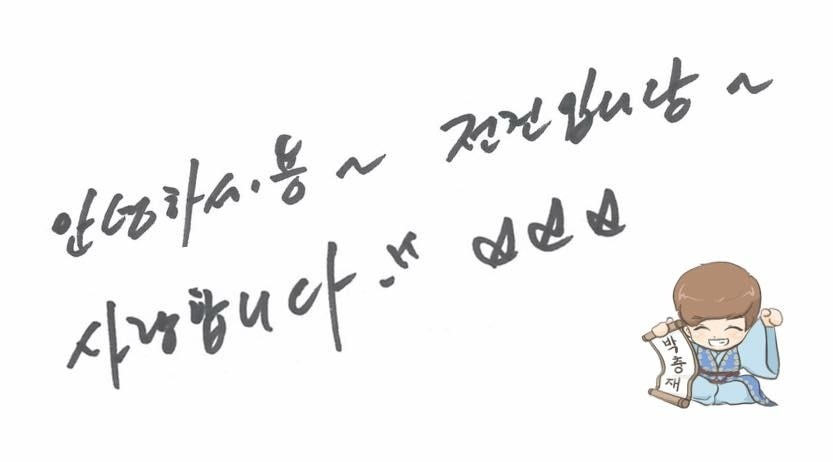 안녕하세용~ 전진입니당~
사랑합니다 ♡♡♡
박충재